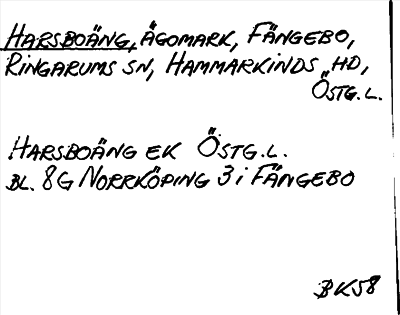 HARSBOÄNG, ÄGOMARK, FÄNGEBO,
RINGARUMS SN, HAMMARKINDS HD,
ÖSTG.L.
HARSBOÄNG EK ÖSTG.L.
BL. 8G NORRKÖPING 3i FÄNGEBO
BK58